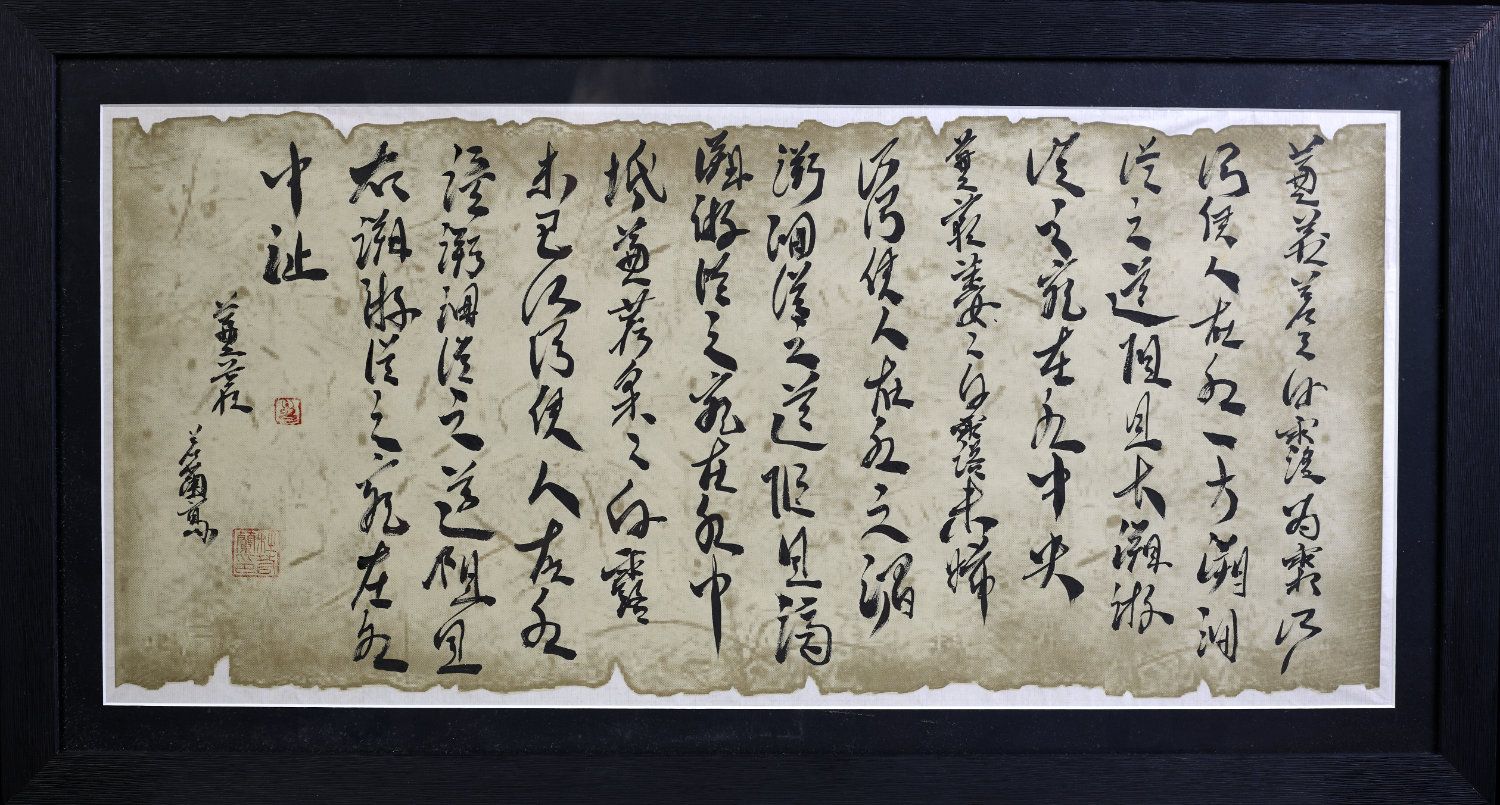 蒹葭蒼蒼白露為霜所
謂伊人在水一方溯洄
從之道阻且長溯游
從之宛在水中央
蒹葭萋萋白露未晞
所謂伊人在水之湄
溯洄從之道阻且躋
溯游從之宛在水中
坻蒹葭采采白露
未已所謂伊人在水
涘溯洄從之道阻且
右溯游從之宛在水
中沚
蒹葭